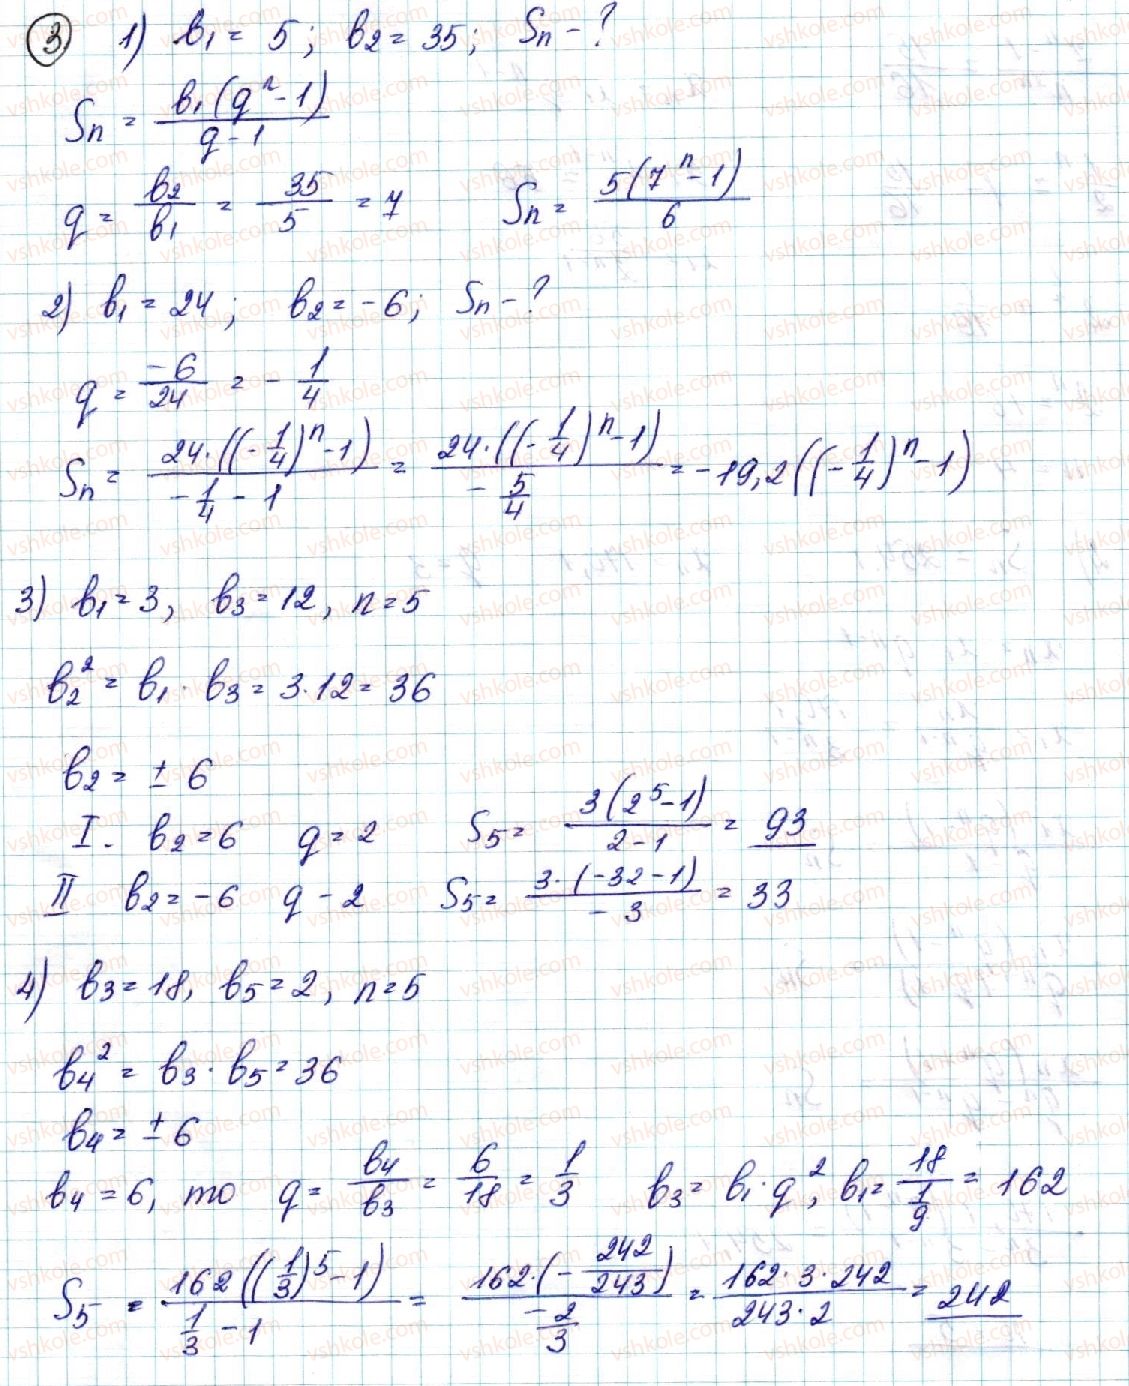 3 1) b₁ = 5; b₂ = 35; Sₙ - ?
Sₙ = b₁(qⁿ - 1) / q - 1
q = b₂/b₁ = 35/5 = 7 Sₙ = 5(7ⁿ - 1)/6
2) b₁ = 24; b₂ = -6; Sₙ - ?
q = -6/24 = - 1/4
Sₙ = 24·((-1/4)ⁿ - 1) / -1/4 - 1 = 24·((-1/4)ⁿ - 1) / - 5/4 = -19,2((-1/4)ⁿ - 1)
3) b₁ = 3, b₃ = 12, n = 5
b₂² = b₁ · b₃ = 3·12 = 36
b₂ = ± 6
I. b₂ = 6 q = 2 S₅ = 3(2⁵ - 1) / 2 - 1 = 93
II b₂ = -6 q - 2 S₅ = 3·(-32 - 1) / - 3 = 33
4) b₃ = 18, b₅ = 2, n = 5
b₄² = b₃ · b₅ = 36
b₄ = ± 6
b₄ = 6, то q = b₄/b₃ = 6/18 = 1/3 b₃ = b₁·q², b₁ = 18 / 1/9 = 162
S₅ = 162((1/3)⁵ - 1) / 1/3 - 1 = 162·(- 242/243) / - 2/3 = 162·3·242 / 243·2 = 242
vshkole.com